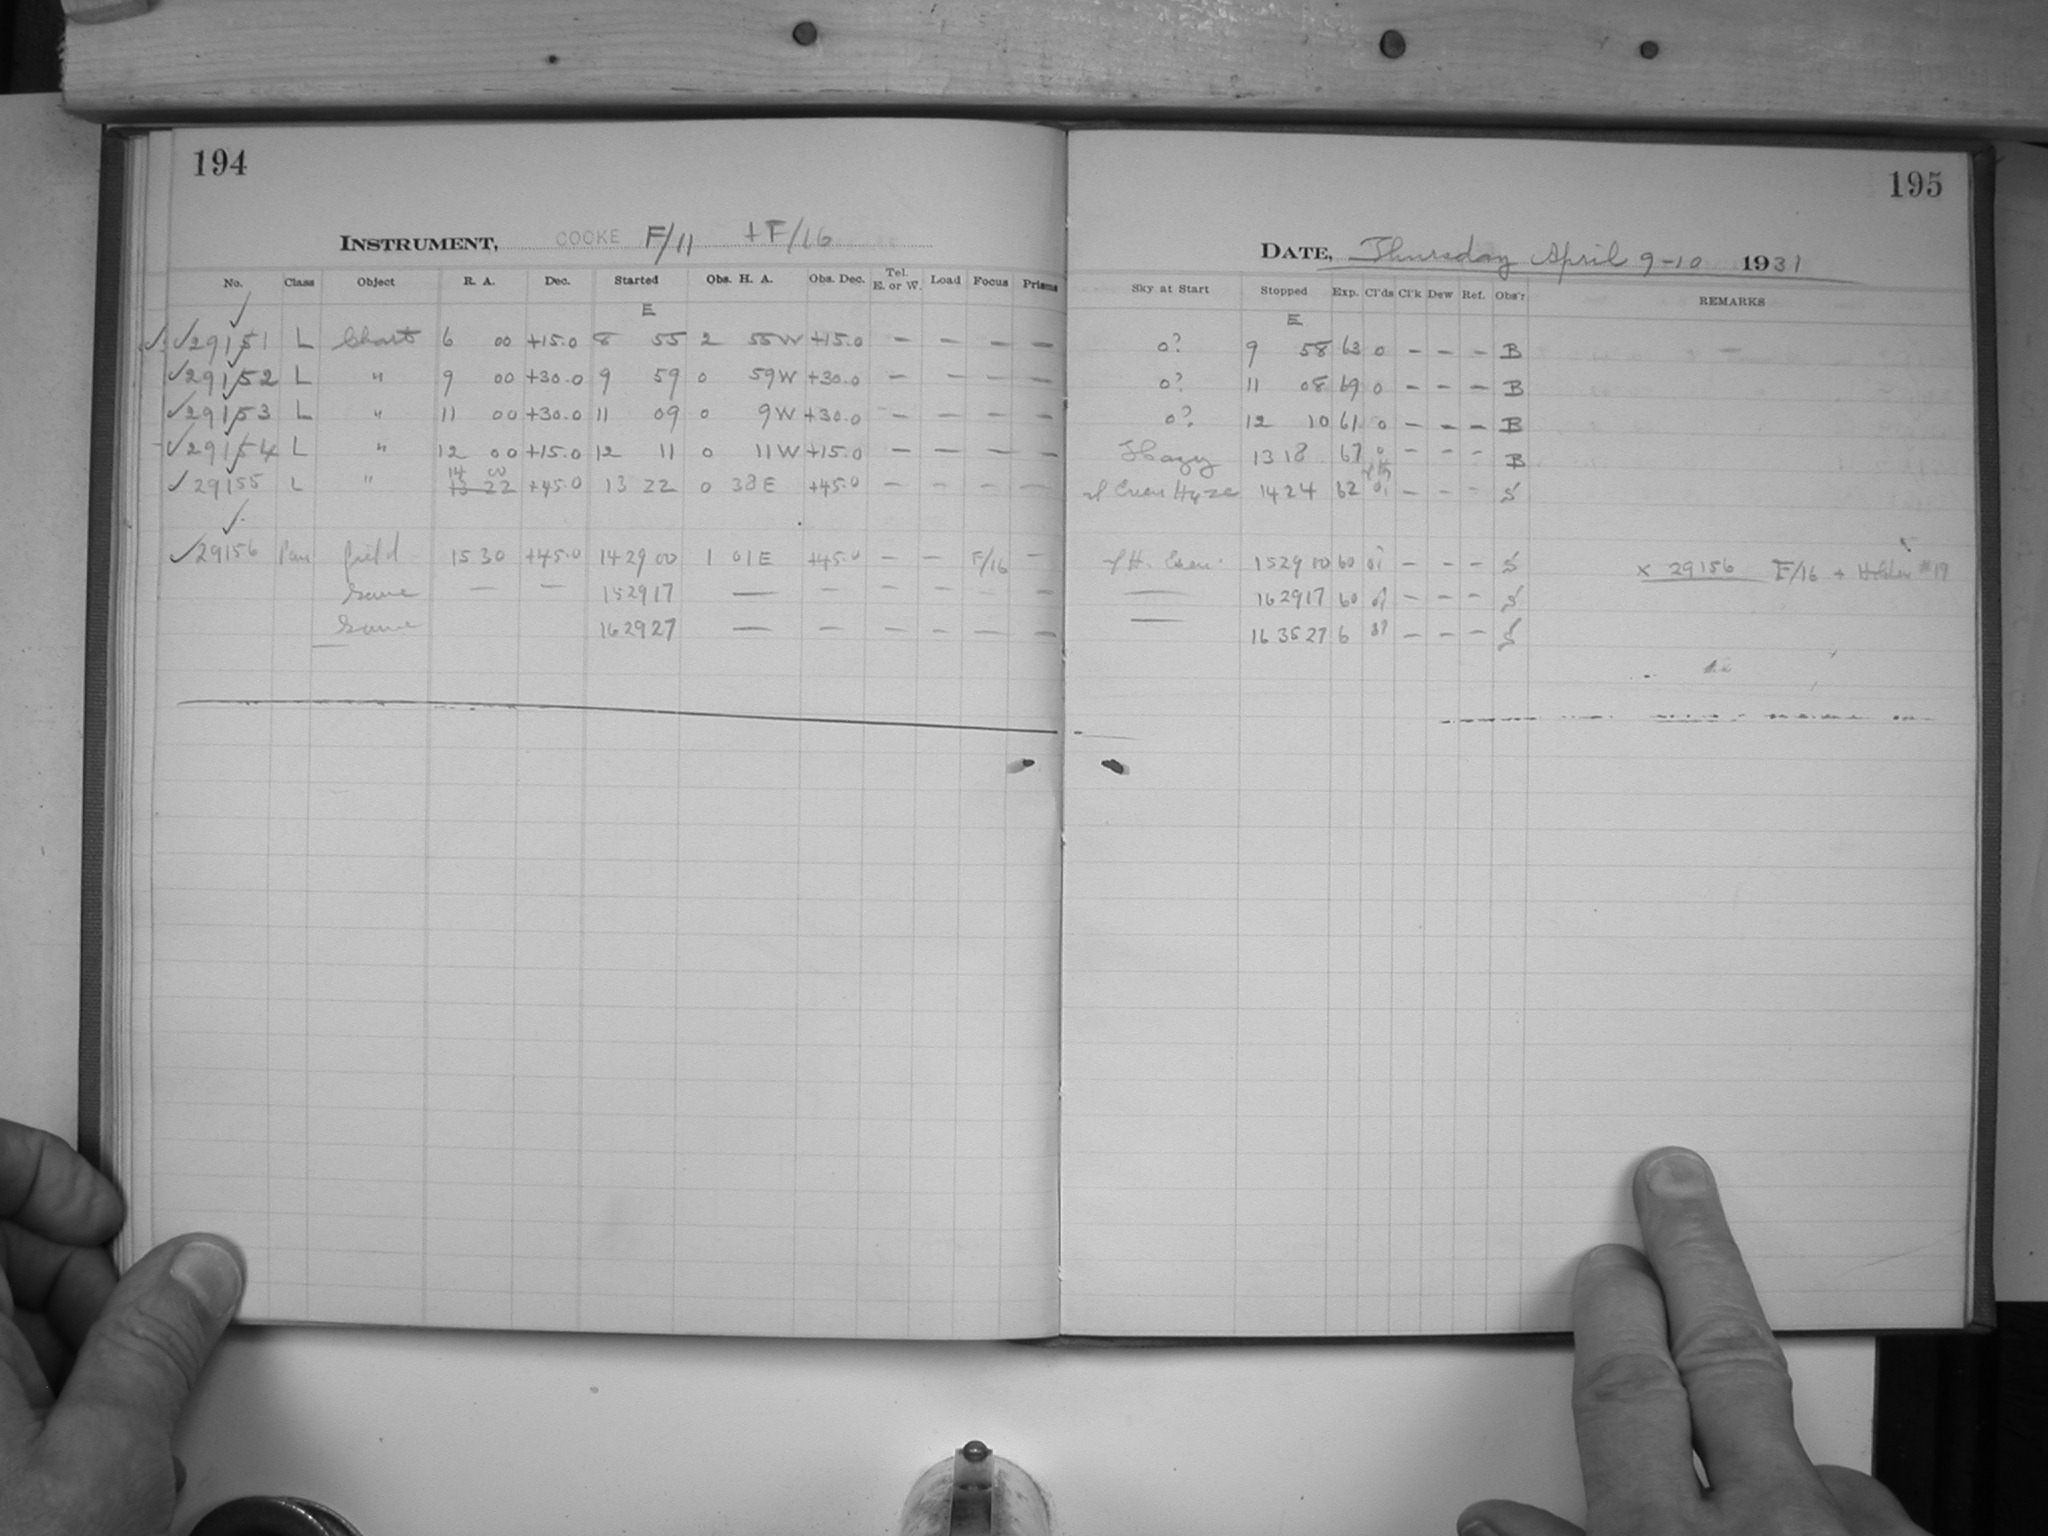 194
INSTRUMENT, COOKE F/11 + F/16
No. Class Object R. A. Dec. Started Obs. H. A. Obs. Dec. Tel. E. or W. Load Focus Prisms
E
29151 L Chart 6 00 +15.0 8 55 2 55W +15.0 – – – –
29152 L " 9 00 +30.0 9 59 0 59W +30.0 – – – –
29153 L " 11 00 +30.0 11 09 0 9W +30.0 – – – –
29154 L " 12 00 +15.0 12 11 0 11W +15.0 – – – –
14 00
29155 L " 13 22 +45.0 13 22 0 38E +45.0 – – – –
29156 Pan field 15 30 +45.0 14 29 00 1 01E +45.0 – – F/16 –
Same – – 15 29 17 — – – – – –
Same 16 29 27 — – – – – –
195
DATE, Thursday April 9-10 1931
Sky at Start Stopped Exp. Cl'ds Cl'k Dew Ref. Obs'r REMARKS
E
0? 9 58 63 0 – – – B –
0? 11 08 69 0 – – – B
0? 12 10 61 0 – – – B
Hazy 13 18 67 0 – – – B
Even Haze 14 24 62 – – – S
Even 15 29 00 60 – – – S x 29156 F/16 + Holder #19
— 16 29 17 60 – – – S
— 16 35 27 6 – – – S